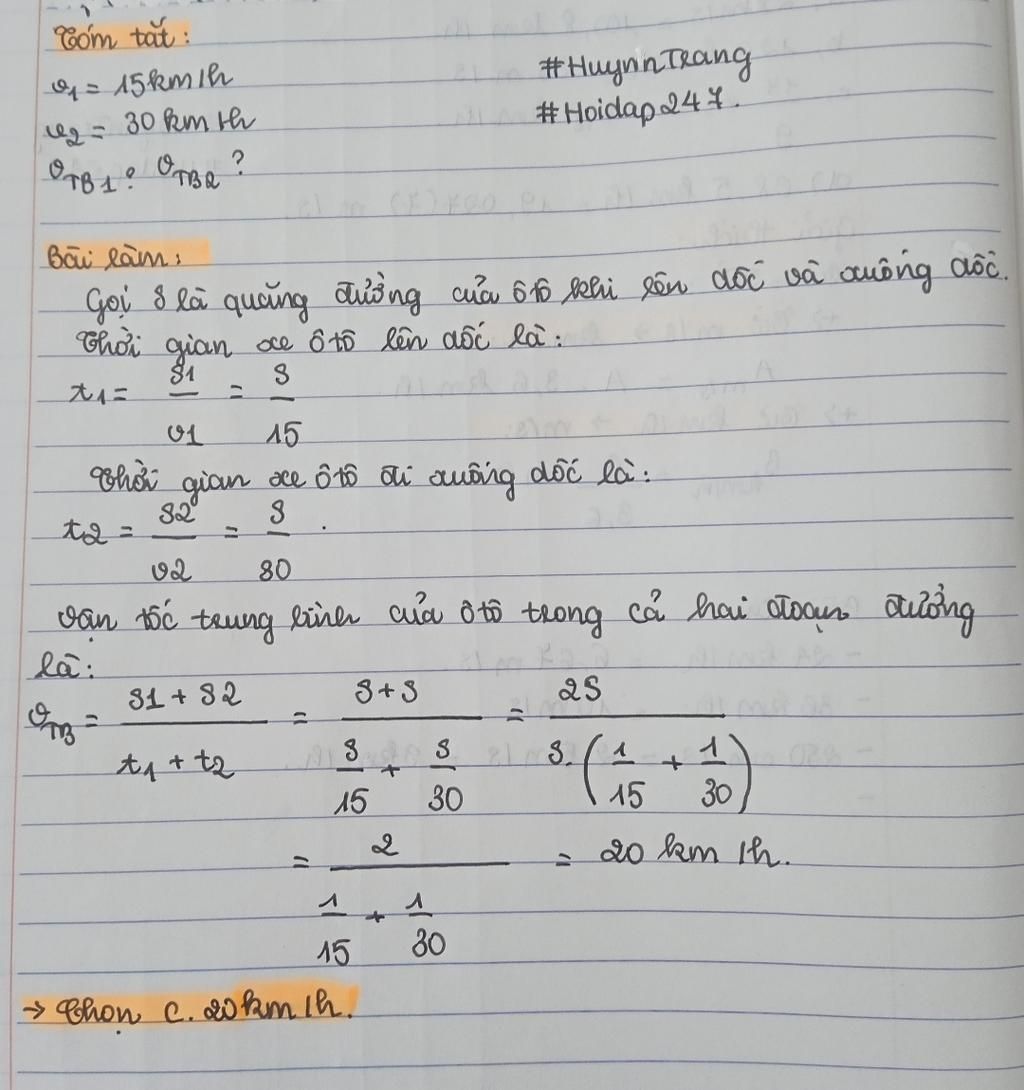 Tóm tắt:
v1 = 15km/h
#HuynnTrang
v2 = 30km/h
#Hoidap247.
vTB1? vTB2?
Bài làm:
Gọi S là quãng đường của ôtô khi lên dốc và xuống dốc.
Thời gian xe ôtô lên dốc là:
t1 = S1/v1 = S/15
Thời gian xe ôtô đi xuống dốc là:
t2 = S2/v2 = S/30.
Vận tốc trung bình của ôtô trong cả hai đoạn đường
là:
vTB = (S1 + S2)/(t1 + t2) = (S + S)/(S/15 + S/30) = 2S/(S.(1/15 + 1/30))
= 2/(1/15 + 1/30) = 20 km/h.
→ Chọn C. 20km/h.